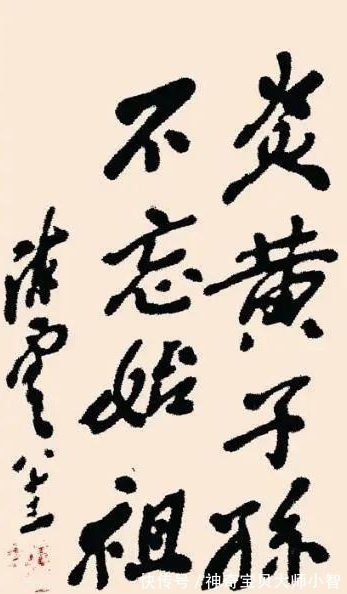 炎黄子孫
不忘始祖
陳雲
快传号/神奇宝贝大师小智